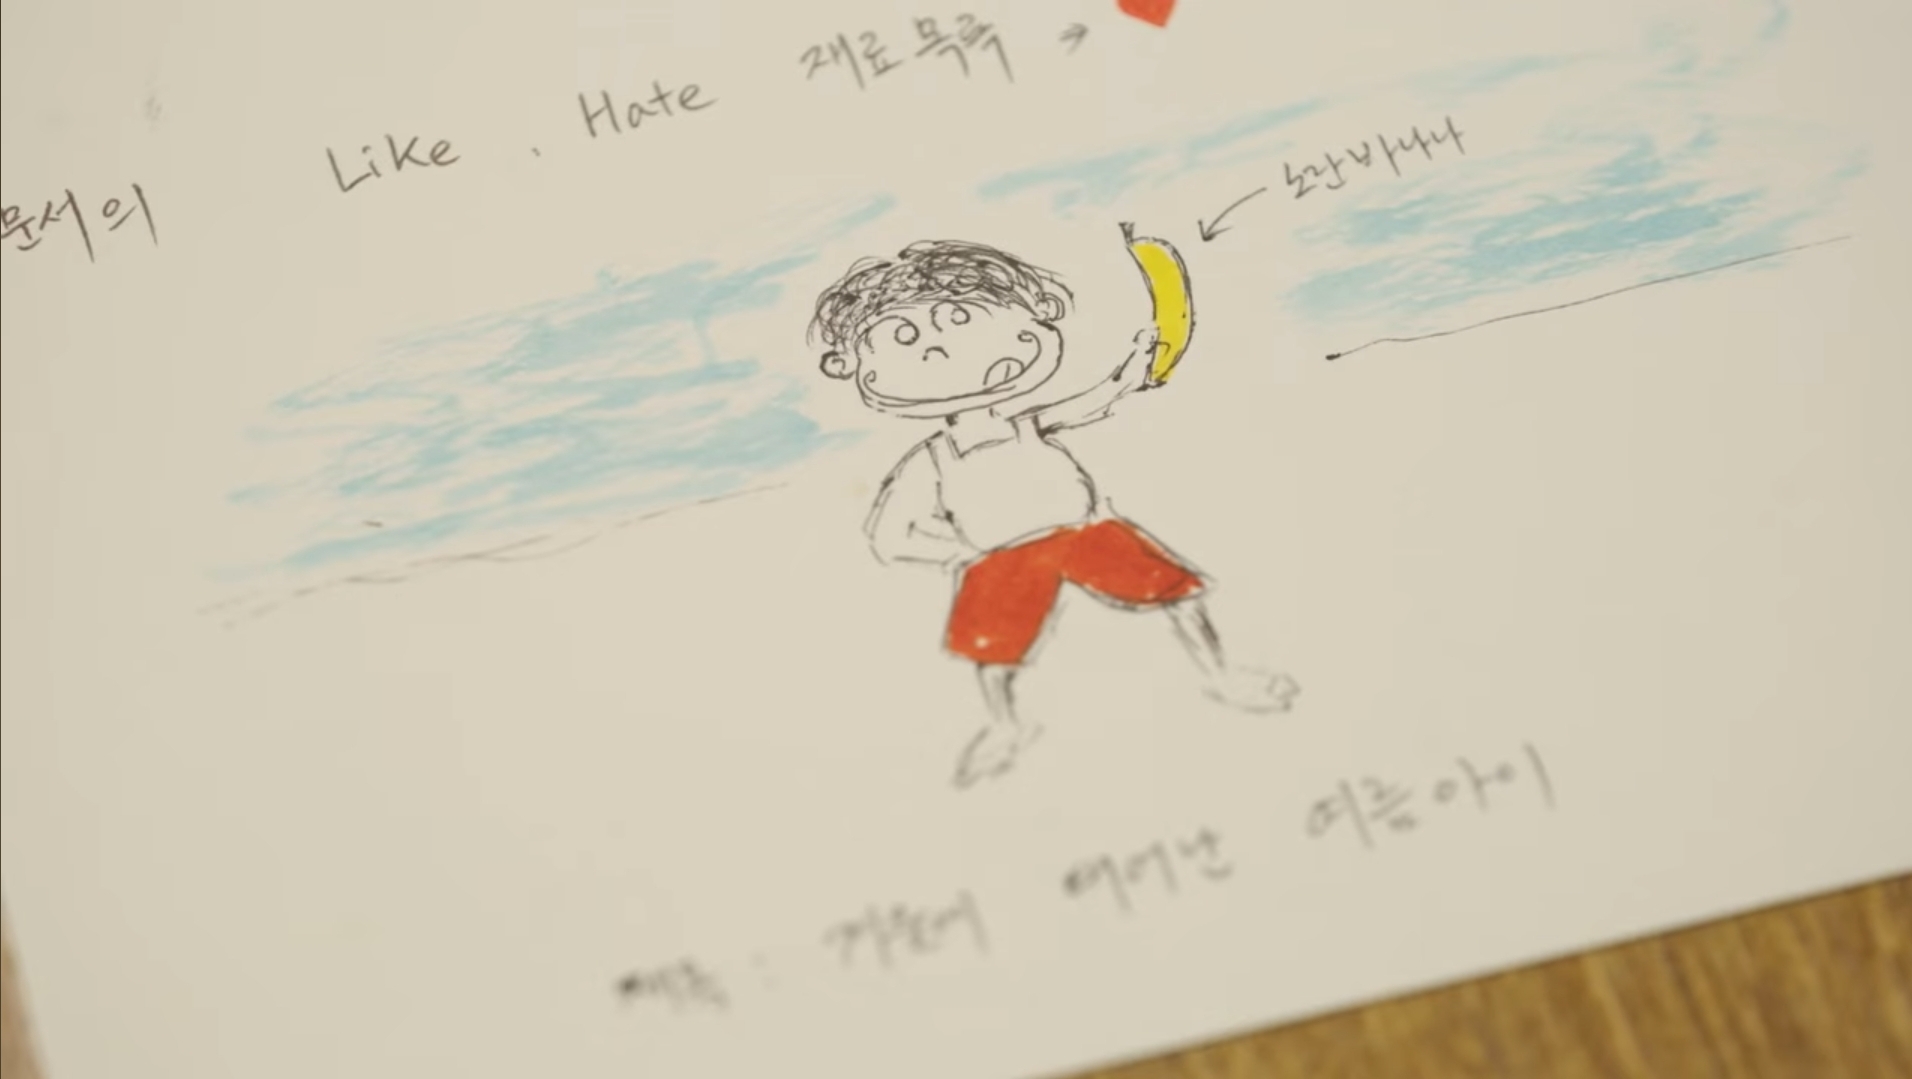 문서의 Like . Hate 재료목록 →
노란바나나
제목 : 겨울에 태어난 여름아이